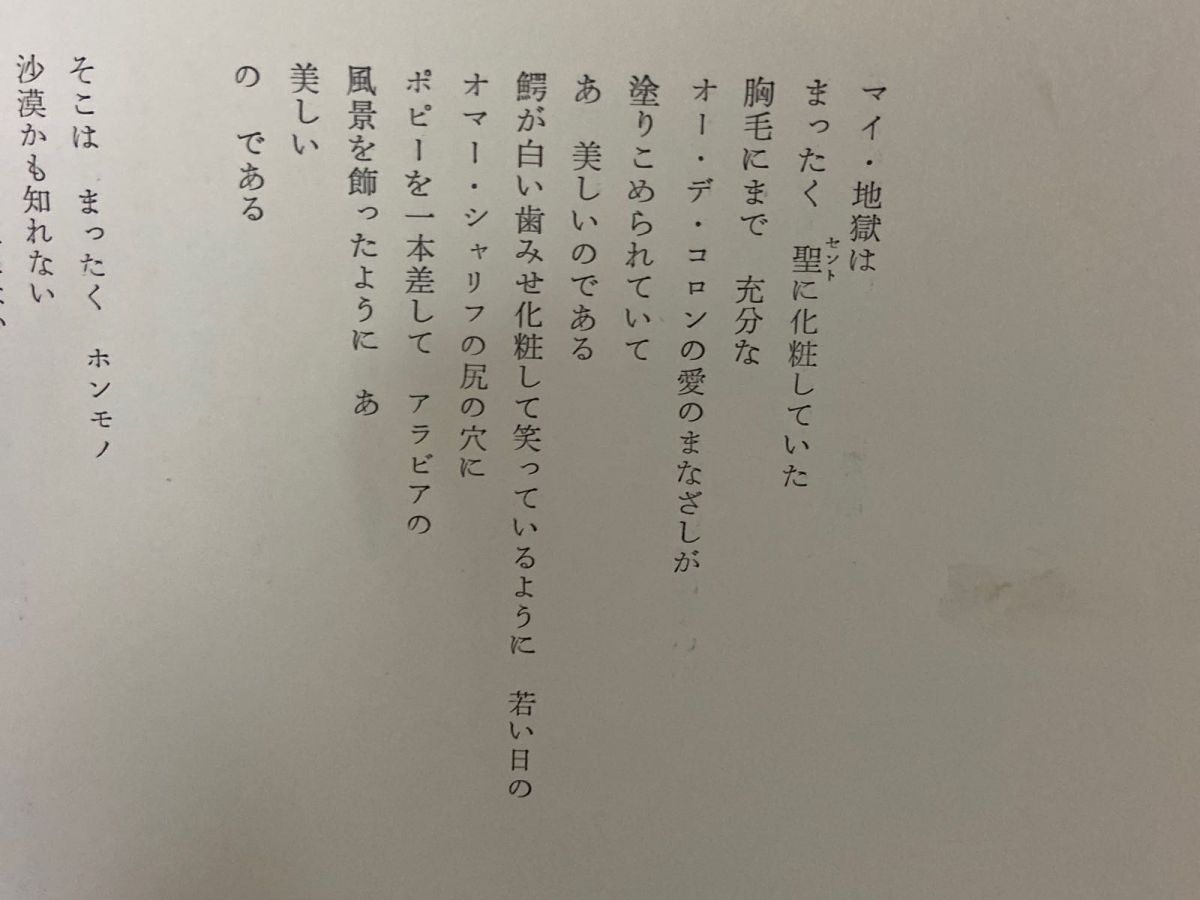 マイ・地獄は
まったく　聖に化粧していた
セント
胸毛にまで　充分な
オー・デ・コロンの愛のまなざしが
塗りこめられていて
あ　美しいのである
鰐が白い歯みせ化粧して笑っているように　若い日の
オマー・シャリフの尻の穴に
ポピーを一本差して　アラビアの
風景を飾ったように　あ
美しい
の　である
そこは　まったく　ホンモノ
沙漠かも知れない